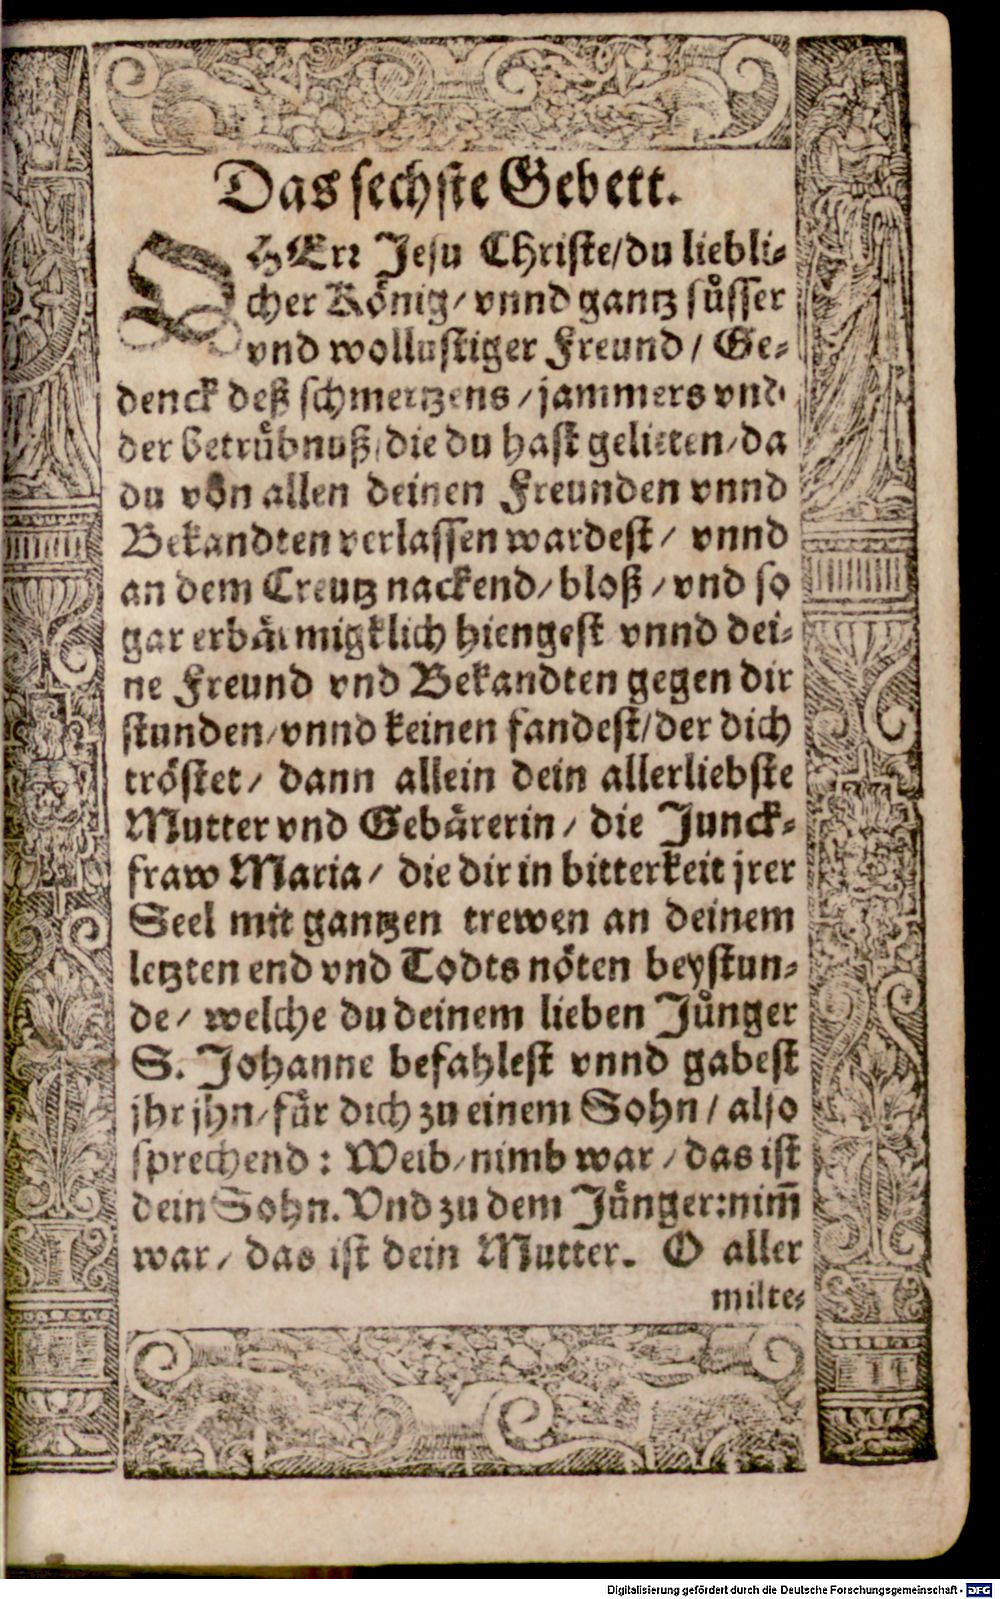 Das sechste Gebett.
O HErr Jesu Christe/ du liebli-
cher König/ vnnd gantz süsser
vnd wollustiger Freund/ Ge-
denck deß schmertzens/ jammers vnd
der betrübnuß/ die du hast gelitten/ da
du von allen deinen Freunden vnnd
Bekandten verlassen wardest/ vnnd
an dem Creutz nackend/ bloß/ vnd so
gar erbärmigklich hiengest vnnd dei-
ne Freund vnd Bekandten gegen dir
stunden/ vnnd keinen fandest/ der dich
tröstet/ dann allein dein allerliebste
Mutter vnd Gebärerin/ die Junck-
fraw Maria/ die dir in bitterkeit jrer
Seel mit gantzen trewen an deinem
letzten end vnd Todts nöten beystun-
de/ welche du deinem lieben Jünger
S. Johanne befahlest vnnd gabest
jhr jhn/ für dich zu einem Sohn/ also
sprechend: Weib/ nimb war/ das ist
dein Sohn. Vnd zu dem Jünger: nim̄
war/ das ist dein Mutter. O aller
milte-
Digitalisierung gefördert durch die Deutsche Forschungsgemeinschaft - DFG